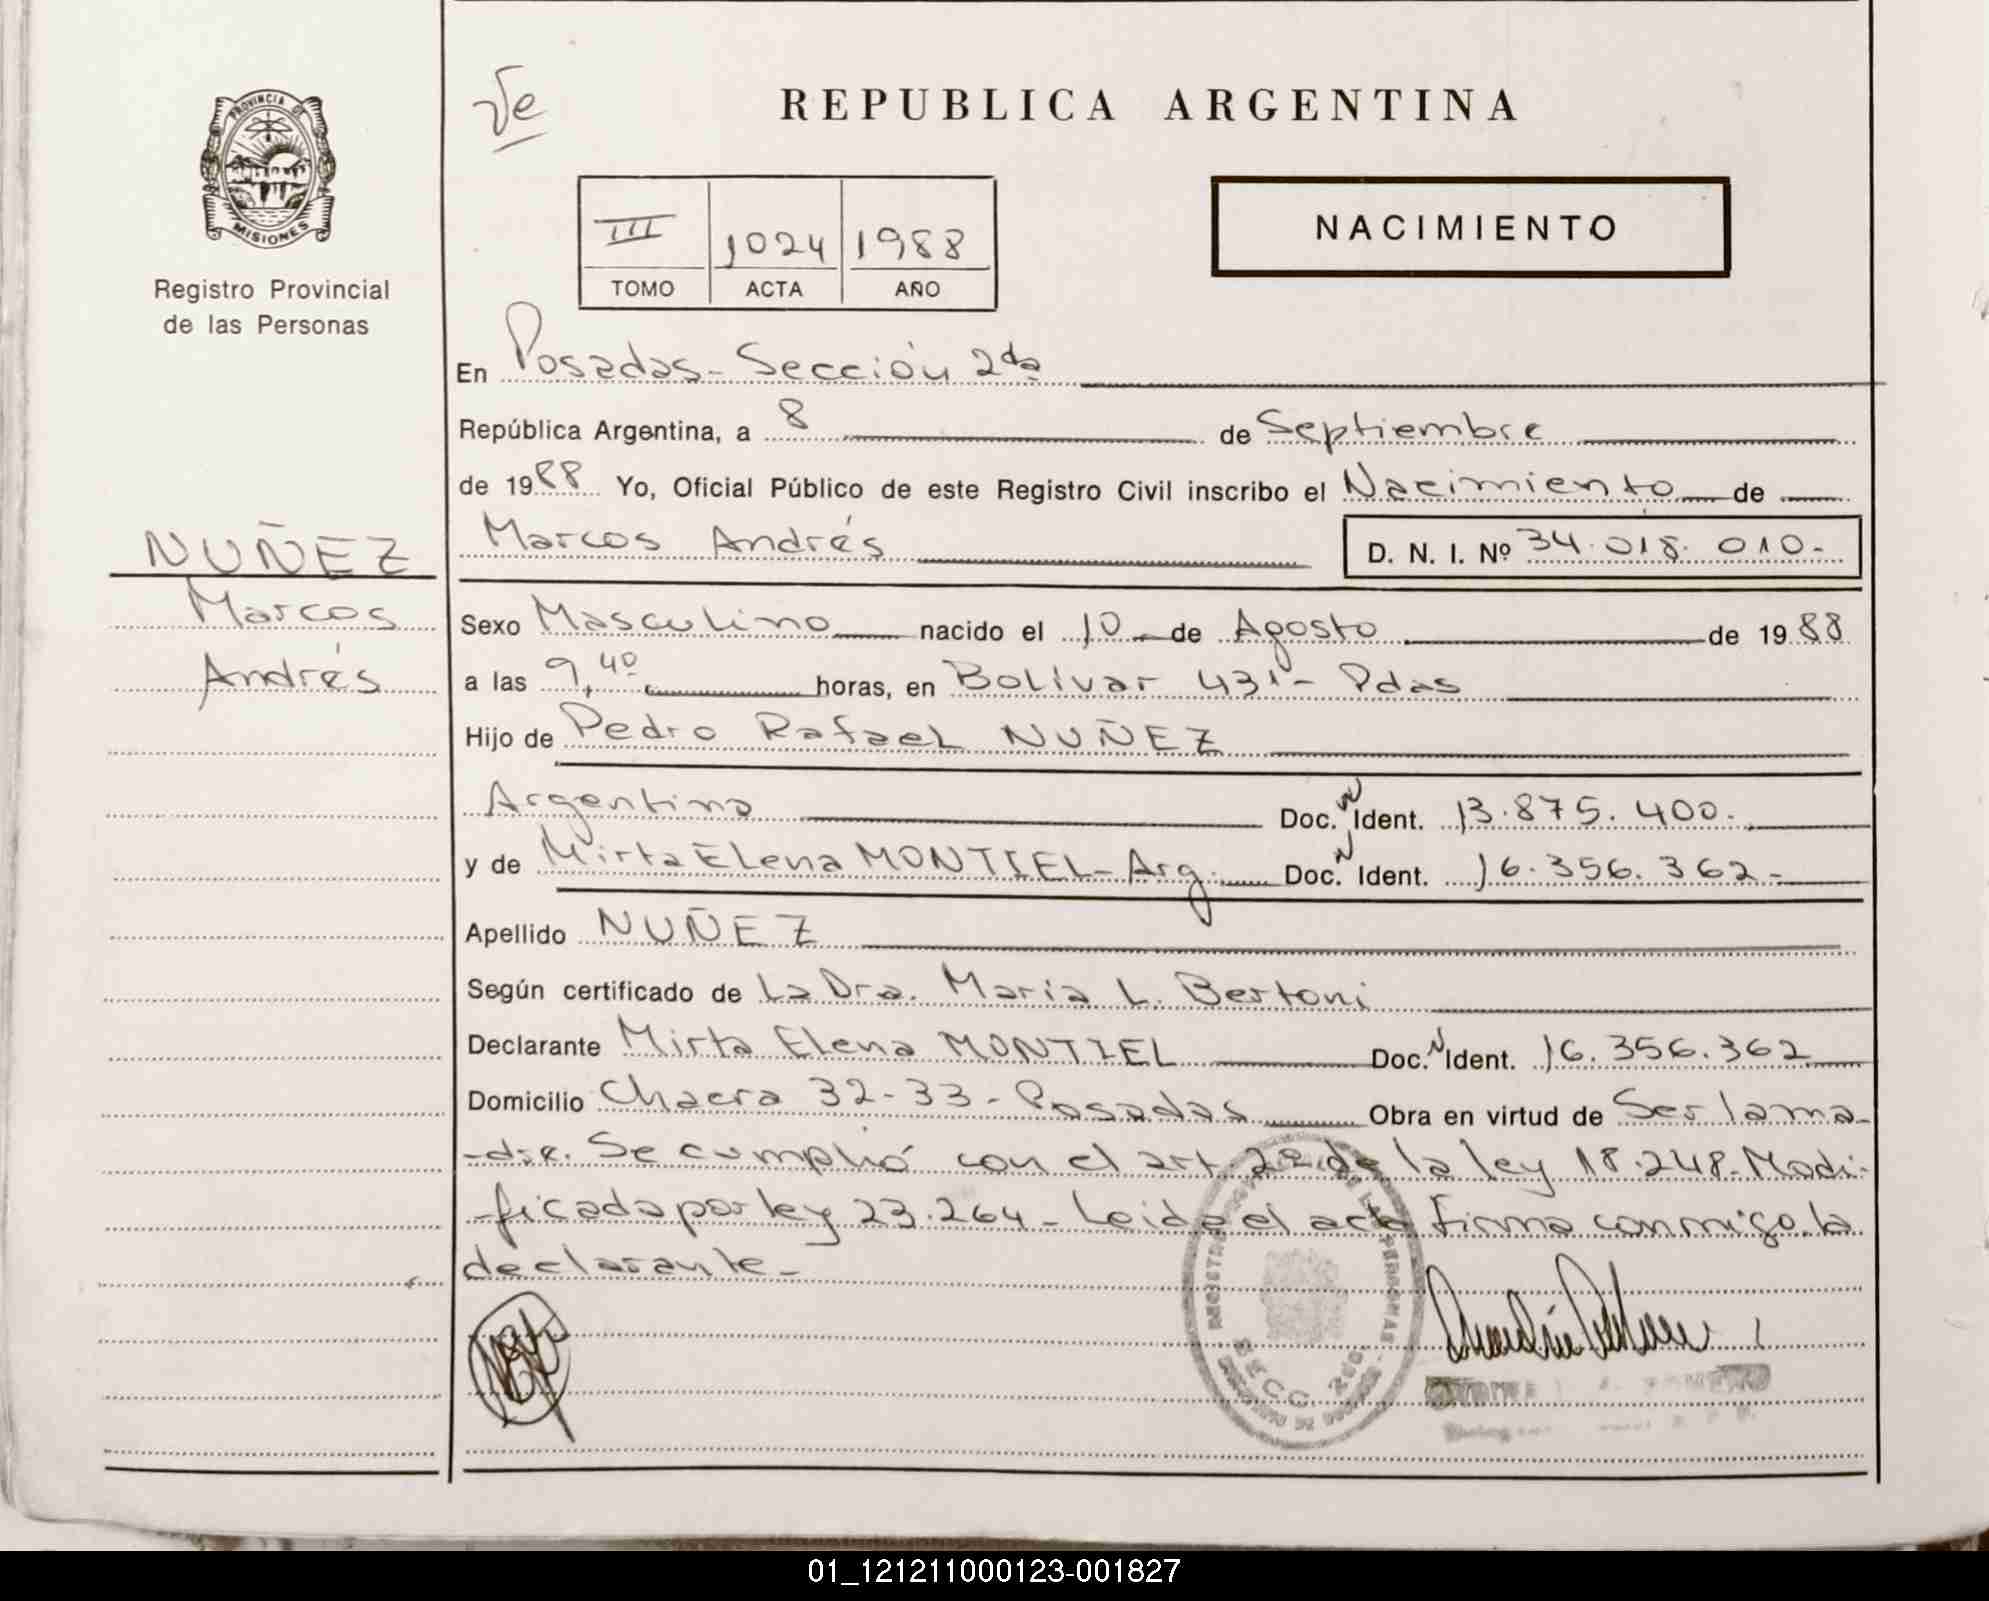 PROVINCIA DE
MISIONES
Registro Provincial
de las Personas
NUÑEZ
Marcos
Andrés
Ve
REPUBLICA ARGENTINA
III 1024 1988
TOMO ACTA AÑO
NACIMIENTO
En Posadas - Sección 2da
República Argentina, a 8 de Septiembre
de 1988 Yo, Oficial Público de este Registro Civil inscribo el Nacimiento de
Marcos Andrés D. N. I. Nº 34.018.010-
Sexo Masculino nacido el 10 de Agosto de 1988
a las 9,40 horas, en Bolívar 431 - Pdas
Hijo de Pedro Rafael NUÑEZ
Argentino Doc. N Ident. 13.875.400.
y de Mirta Elena MONTIEL - Arg. Doc. N Ident. 16.356.362-
Apellido NUÑEZ
Según certificado de La Dra. María L. Bertoni
Declarante Mirta Elena MONTIEL Doc. N Ident. 16.356.362
Domicilio Chacra 32-33 - Posadas Obra en virtud de Ser la ma-
-dre. Se cumplió con el art 2º de la ley 18.248. Modi-
-ficada por ley 23.264 - Leida el acta firma conmigo la
declarante -
SECC. 2da.
01_121211000123-001827